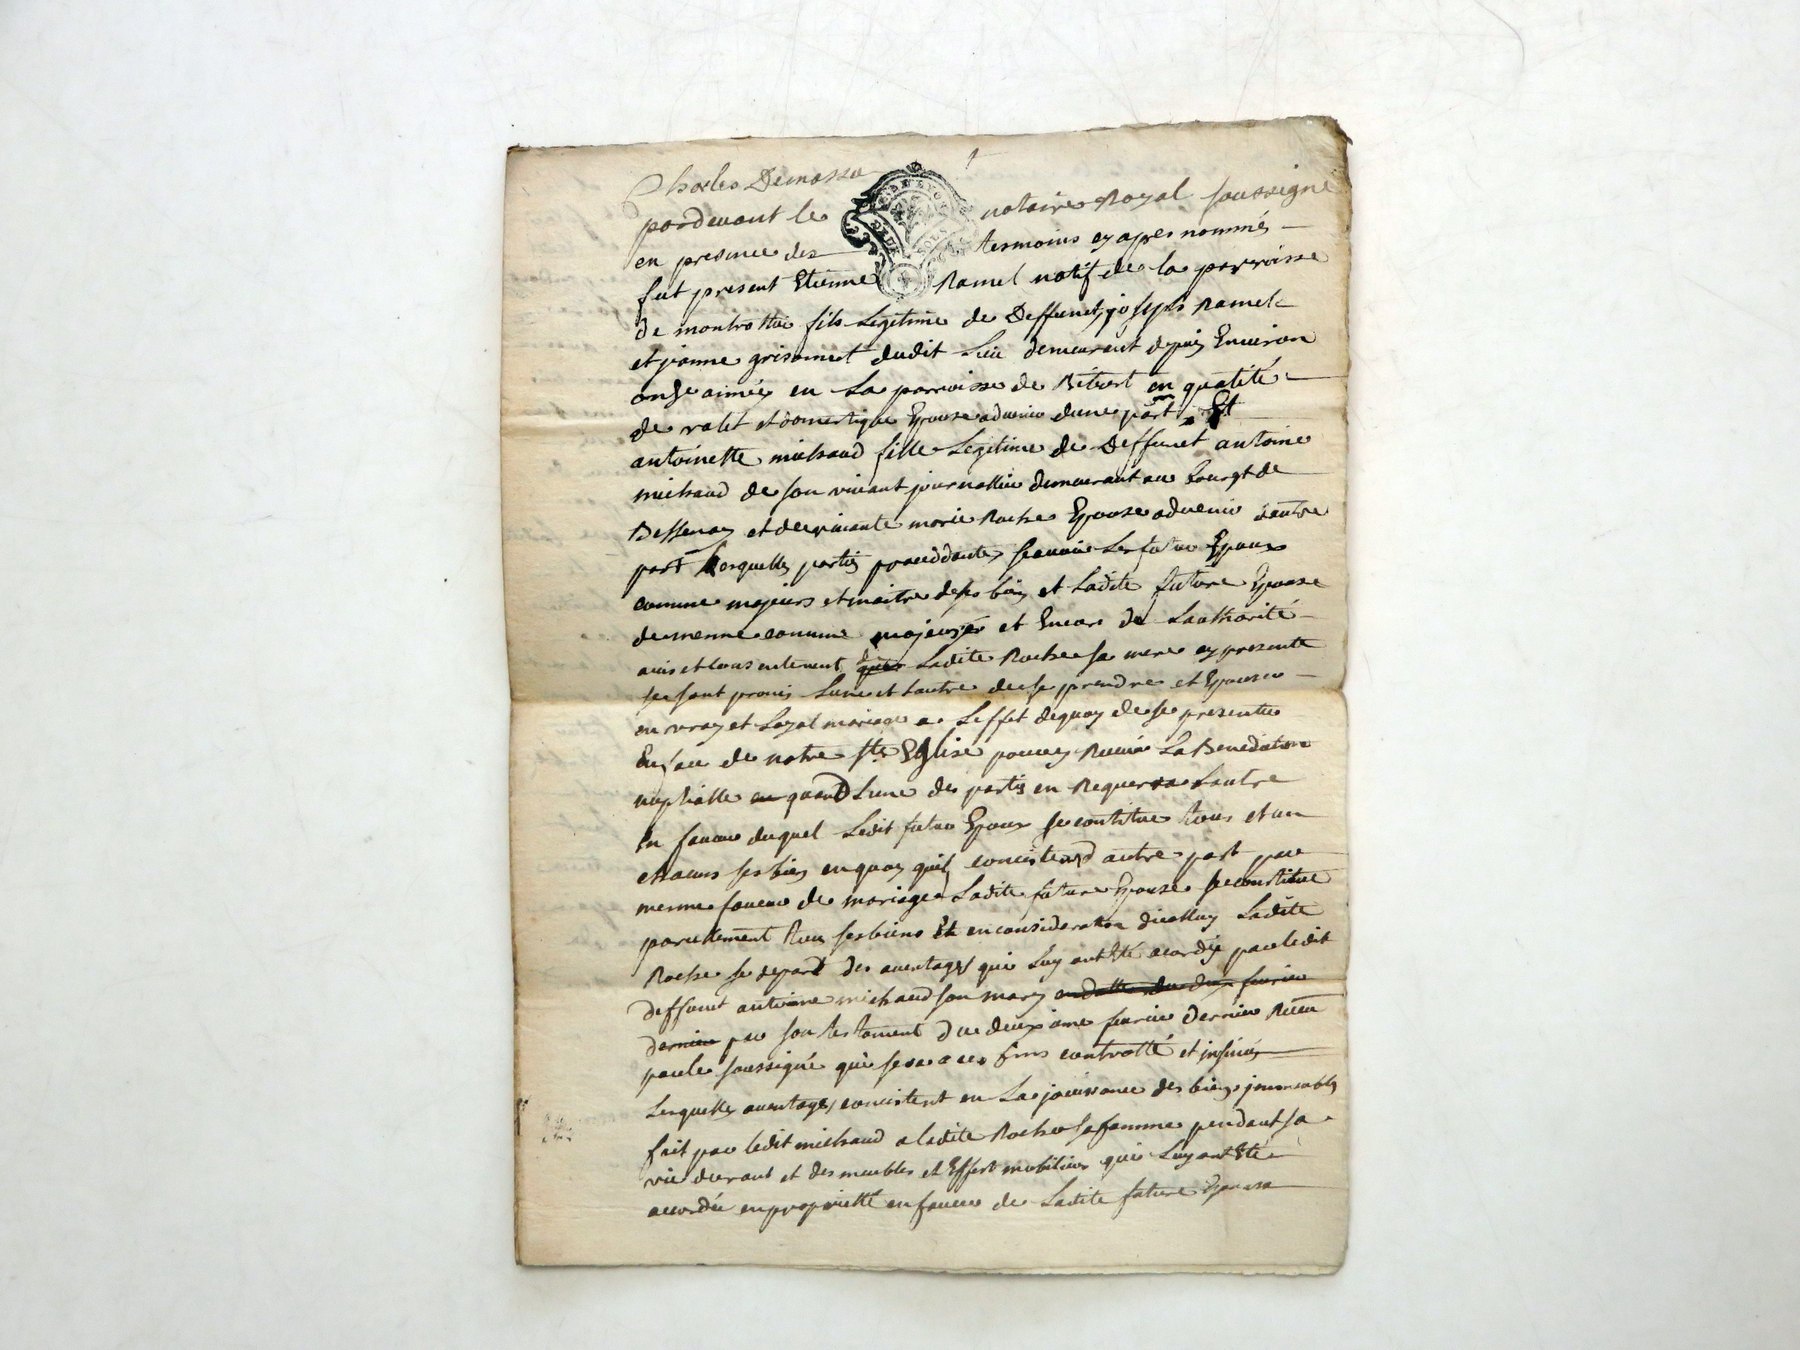 Charles Demossa
pardevant le notaire Royal soussigné
en presence des tesmoins cy apres nommés
fut present Etienne Ramel natif de la parroisse
de montrottier fils Legitime de Deffunct joseph Ramel
et jeanne grisomet dudit Lieu demeurant depuis Environ
onze année en La parroisse de en qualité
de valet et domestique Epoux advenir dune part Et
antoinette michaud fille Legitime de Deffunct antoine
michaud de son vivant journallier demeurant au Bourgt de
Bessenay et de vivante marie Roche Epouse advenir dautre
part Lesquelles parties proceddantes scavoir Le futur Epoux
comme majeurs et maitre de ses biens et Ladite future Epouse
de mesme comme majeure et Encore de Lauthorité
avis et consentement de Ladite Roche sa mere cy presente
se sont promis Lun et Lautre de se prendre et Epouser
en vray et Loyal mariage a Leffet dequoy de se presenter
En face de notre ste Eglise pour y Recevoir La Benediction
nuptialle quand Lune des parties en Requerra Lautre
En faveur duquel Ledit futur Epoux se constitue tous et un
chacuns ses biens en quoy quils concistent dautre part par
mesme faveur de mariage Ladite future Epouse se constitue
pareillement tous ses biens Et en consideration dicelluy Ladite
Roche se depart des aventages qui Luy ont Eté acordés par ledit
deffunct antoine michaud son mary en datte du dix fevrier
dernier par son testament du deuxieme fevrier dernier Receu
par le soussigné qui sera a ces fins controllé et insinué
Lesquelles aventages concistent en La jouissance des biens immeubles
fait par ledit michaud a ladite Roche sa femme pendant sa
vie durant et des meubles et Effect mobiliers qui Luy ont Eté
accordée en proprietté en faveur de Ladite future Epouse